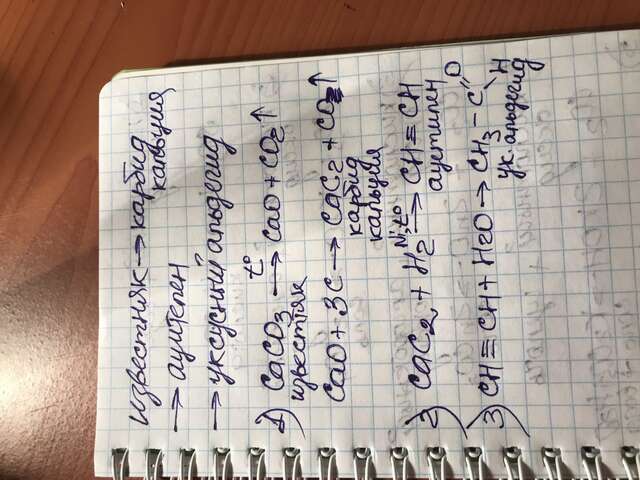 известняк → карбид
кальция
→ ацителен
→ уксусный альдегид
1) CaCO3 t° → CaO + CO2 ↑
известняк
CaO + 3C → CaC2 + CO ↑
карбид
кальция
2) CaC2 + H2 Ni, t° → CH ≡ CH
ацетилен
3) CH ≡ CH + H2O → CH3 – C O H
ук. альдегид